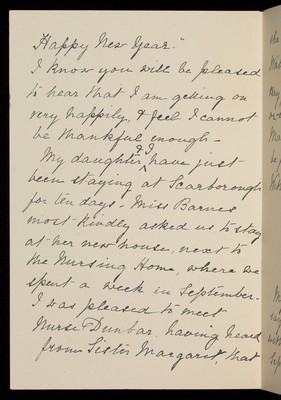 Happy New Year."
I know you will be pleased
to hear that I am getting on
very happily, & feel I cannot
be thankful enough -
My daughter & I have just
been staying at Scarborough
for ten days - Miss Barnes
most kindly asked us to stay
at her new house, next to
the Nursing Home, where we
spent a week in September.
I was pleased to meet
Nurse Dunbar, having heard
from Sister Margaret, that